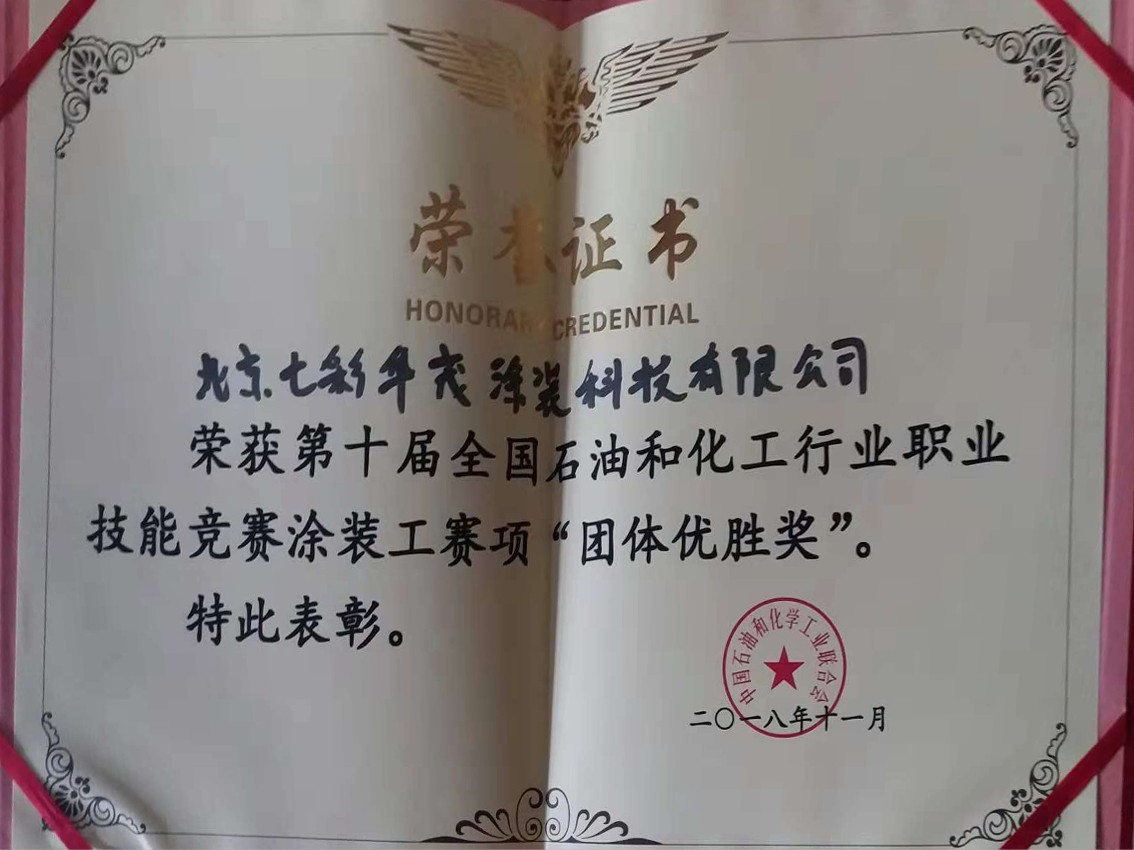 荣誉证书
HONORARY CREDENTIAL
北京七彩华茂涂装科技有限公司
荣获第十届全国石油和化工行业职业
技能竞赛涂装工赛项“团体优胜奖”。
特此表彰。
中国石油和化学工业联合会
二〇一八年十一月